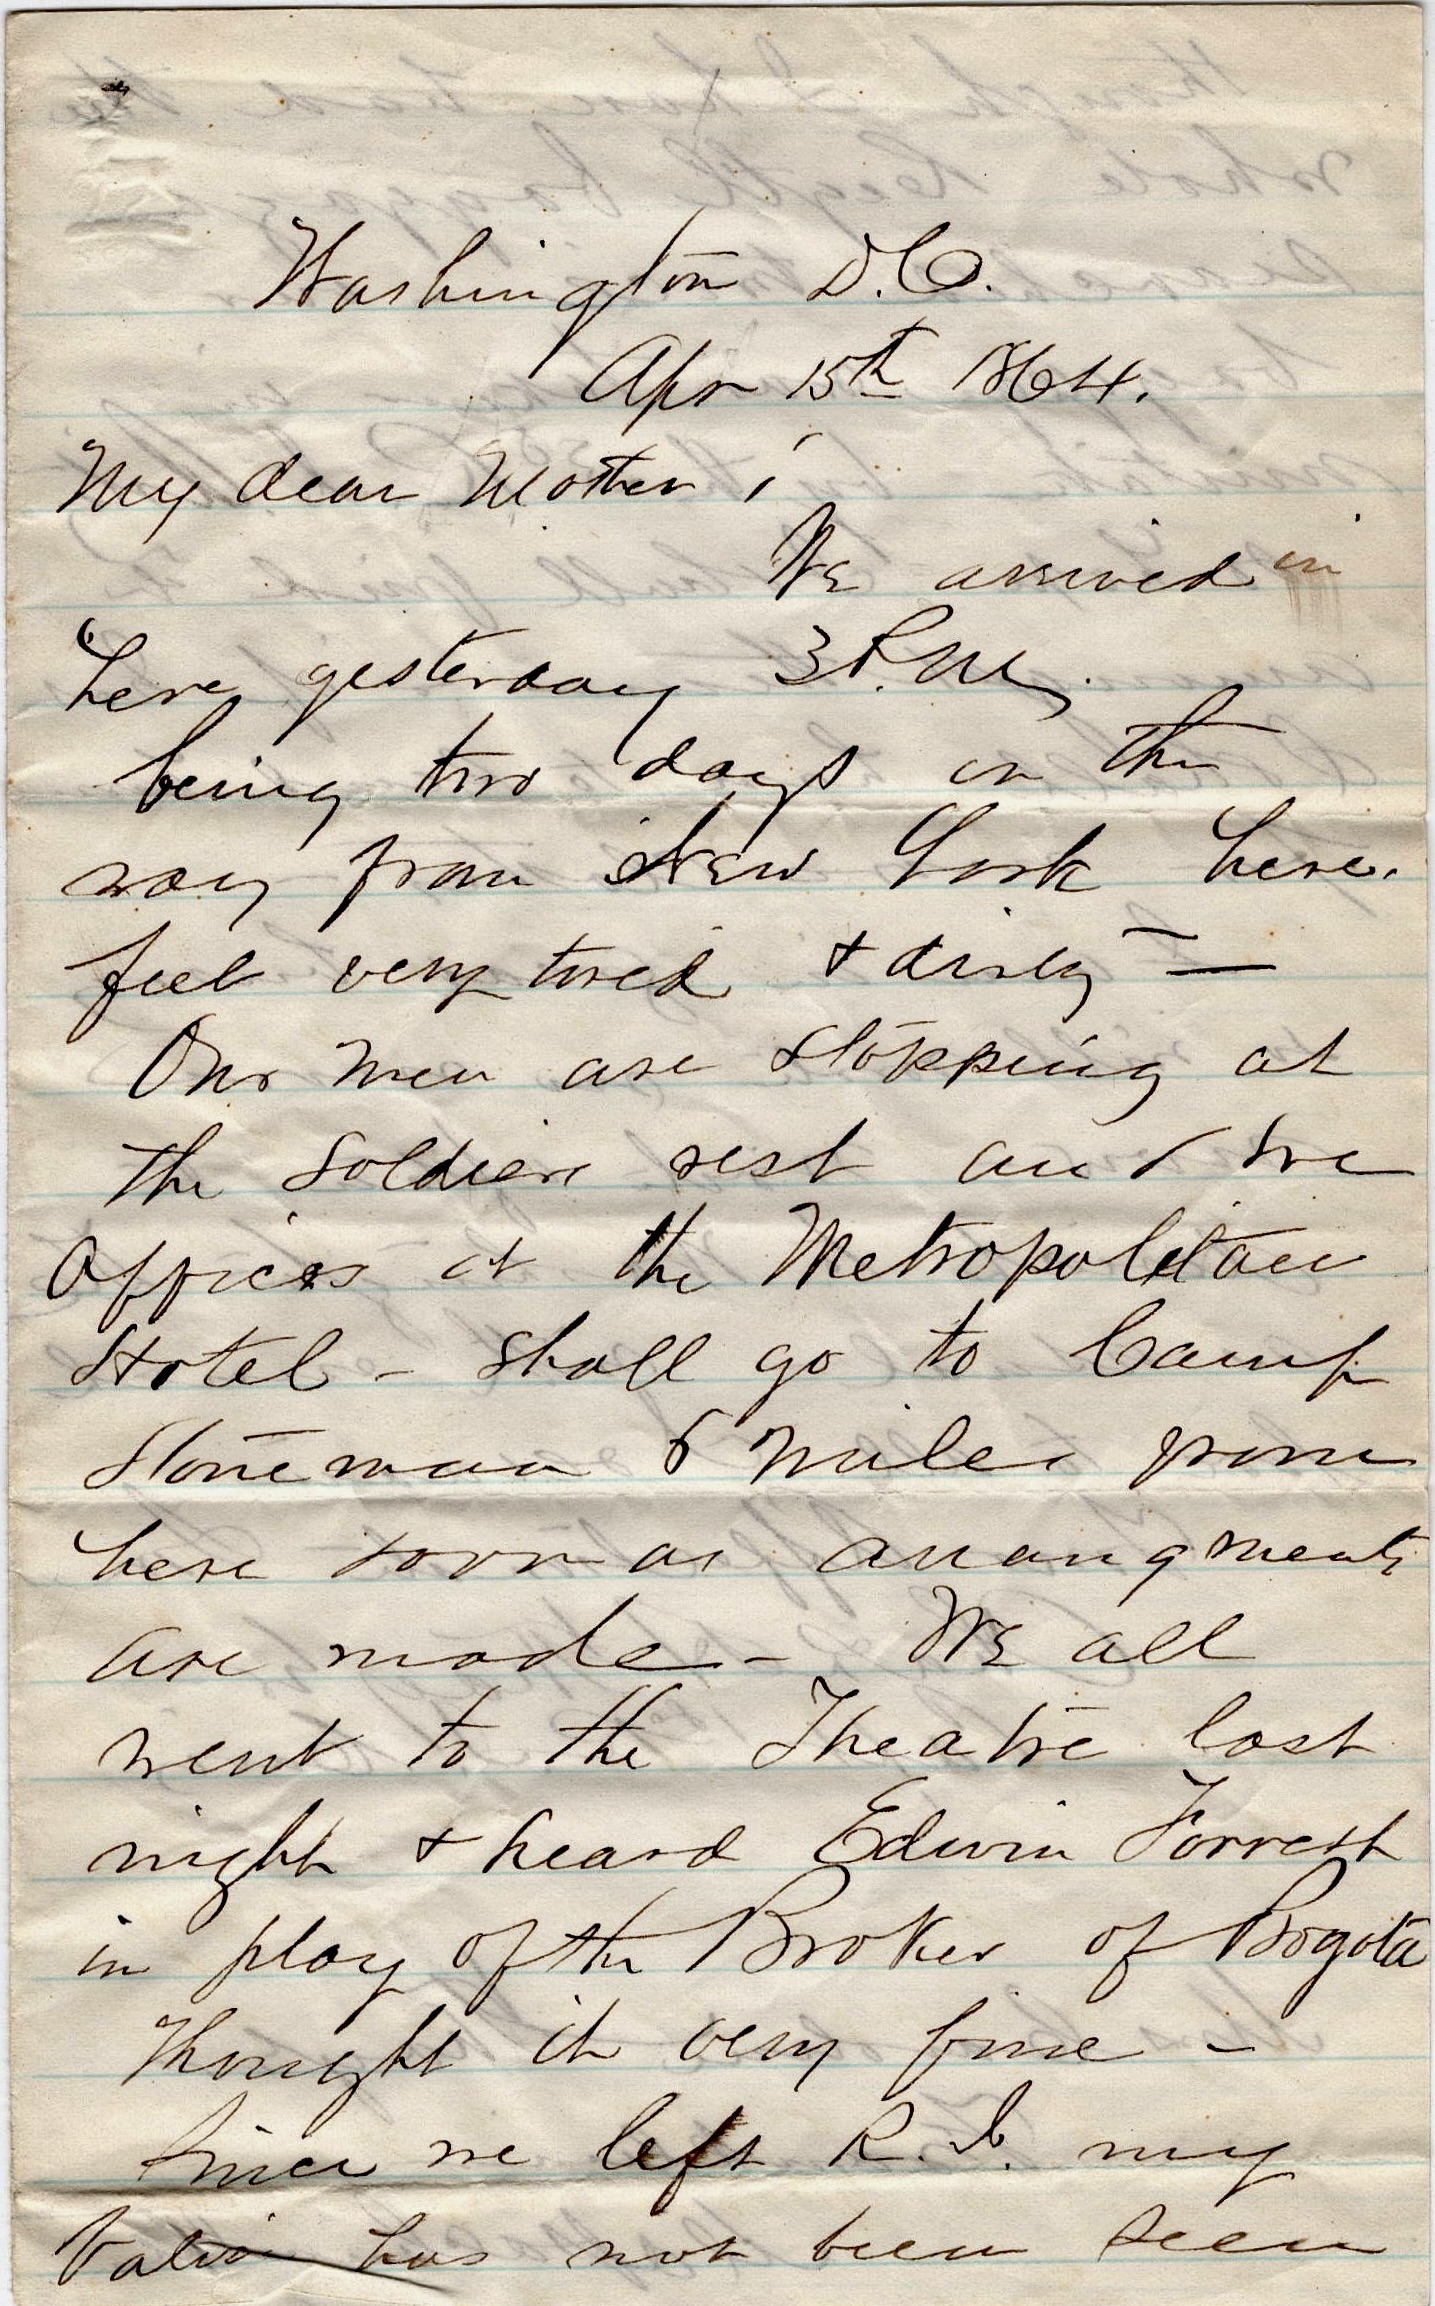 Washington D.C.
Apr 15th 1864.
My dear Mother;
We arrived in
here yesterday 3 P.M.
being two days on the
way from New York here.
feel very tired & dirty —
Our men are stopping at
the Soldiers rest and we
Officers at the Metropolitan
Hotel - shall go to Camp
Stoneman 6 miles from
here soon as arrangments
are made - We all
went to the Theatre last
night & heard Edwin Forrest
in play of the Broker of Bogota
thought it very fine -
Since we left R.I. my
Valise has not been seen